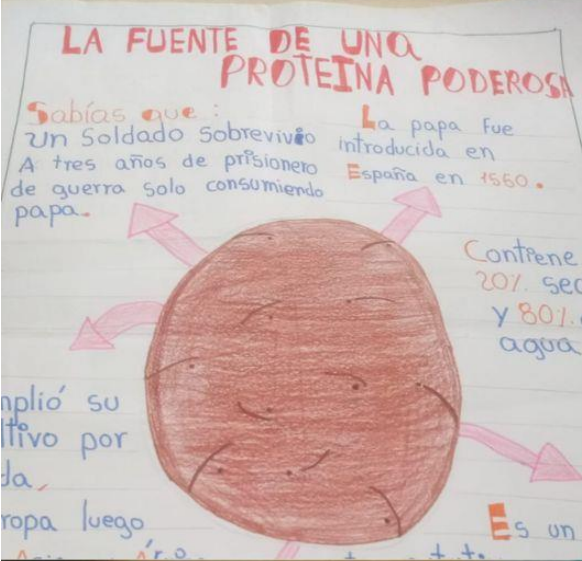 LA FUENTE DE UNA
PROTEINA PODEROSA
Sabías que:
Un Soldado Sobrevivio
A tres años de prisionero
de guerra solo consumiendo
papa.
La papa fue
introducida en
España en 1560.
Contiene
20% sec
y 80%
agua
mplió su
ltivo por
da,
ropa luego
Es un